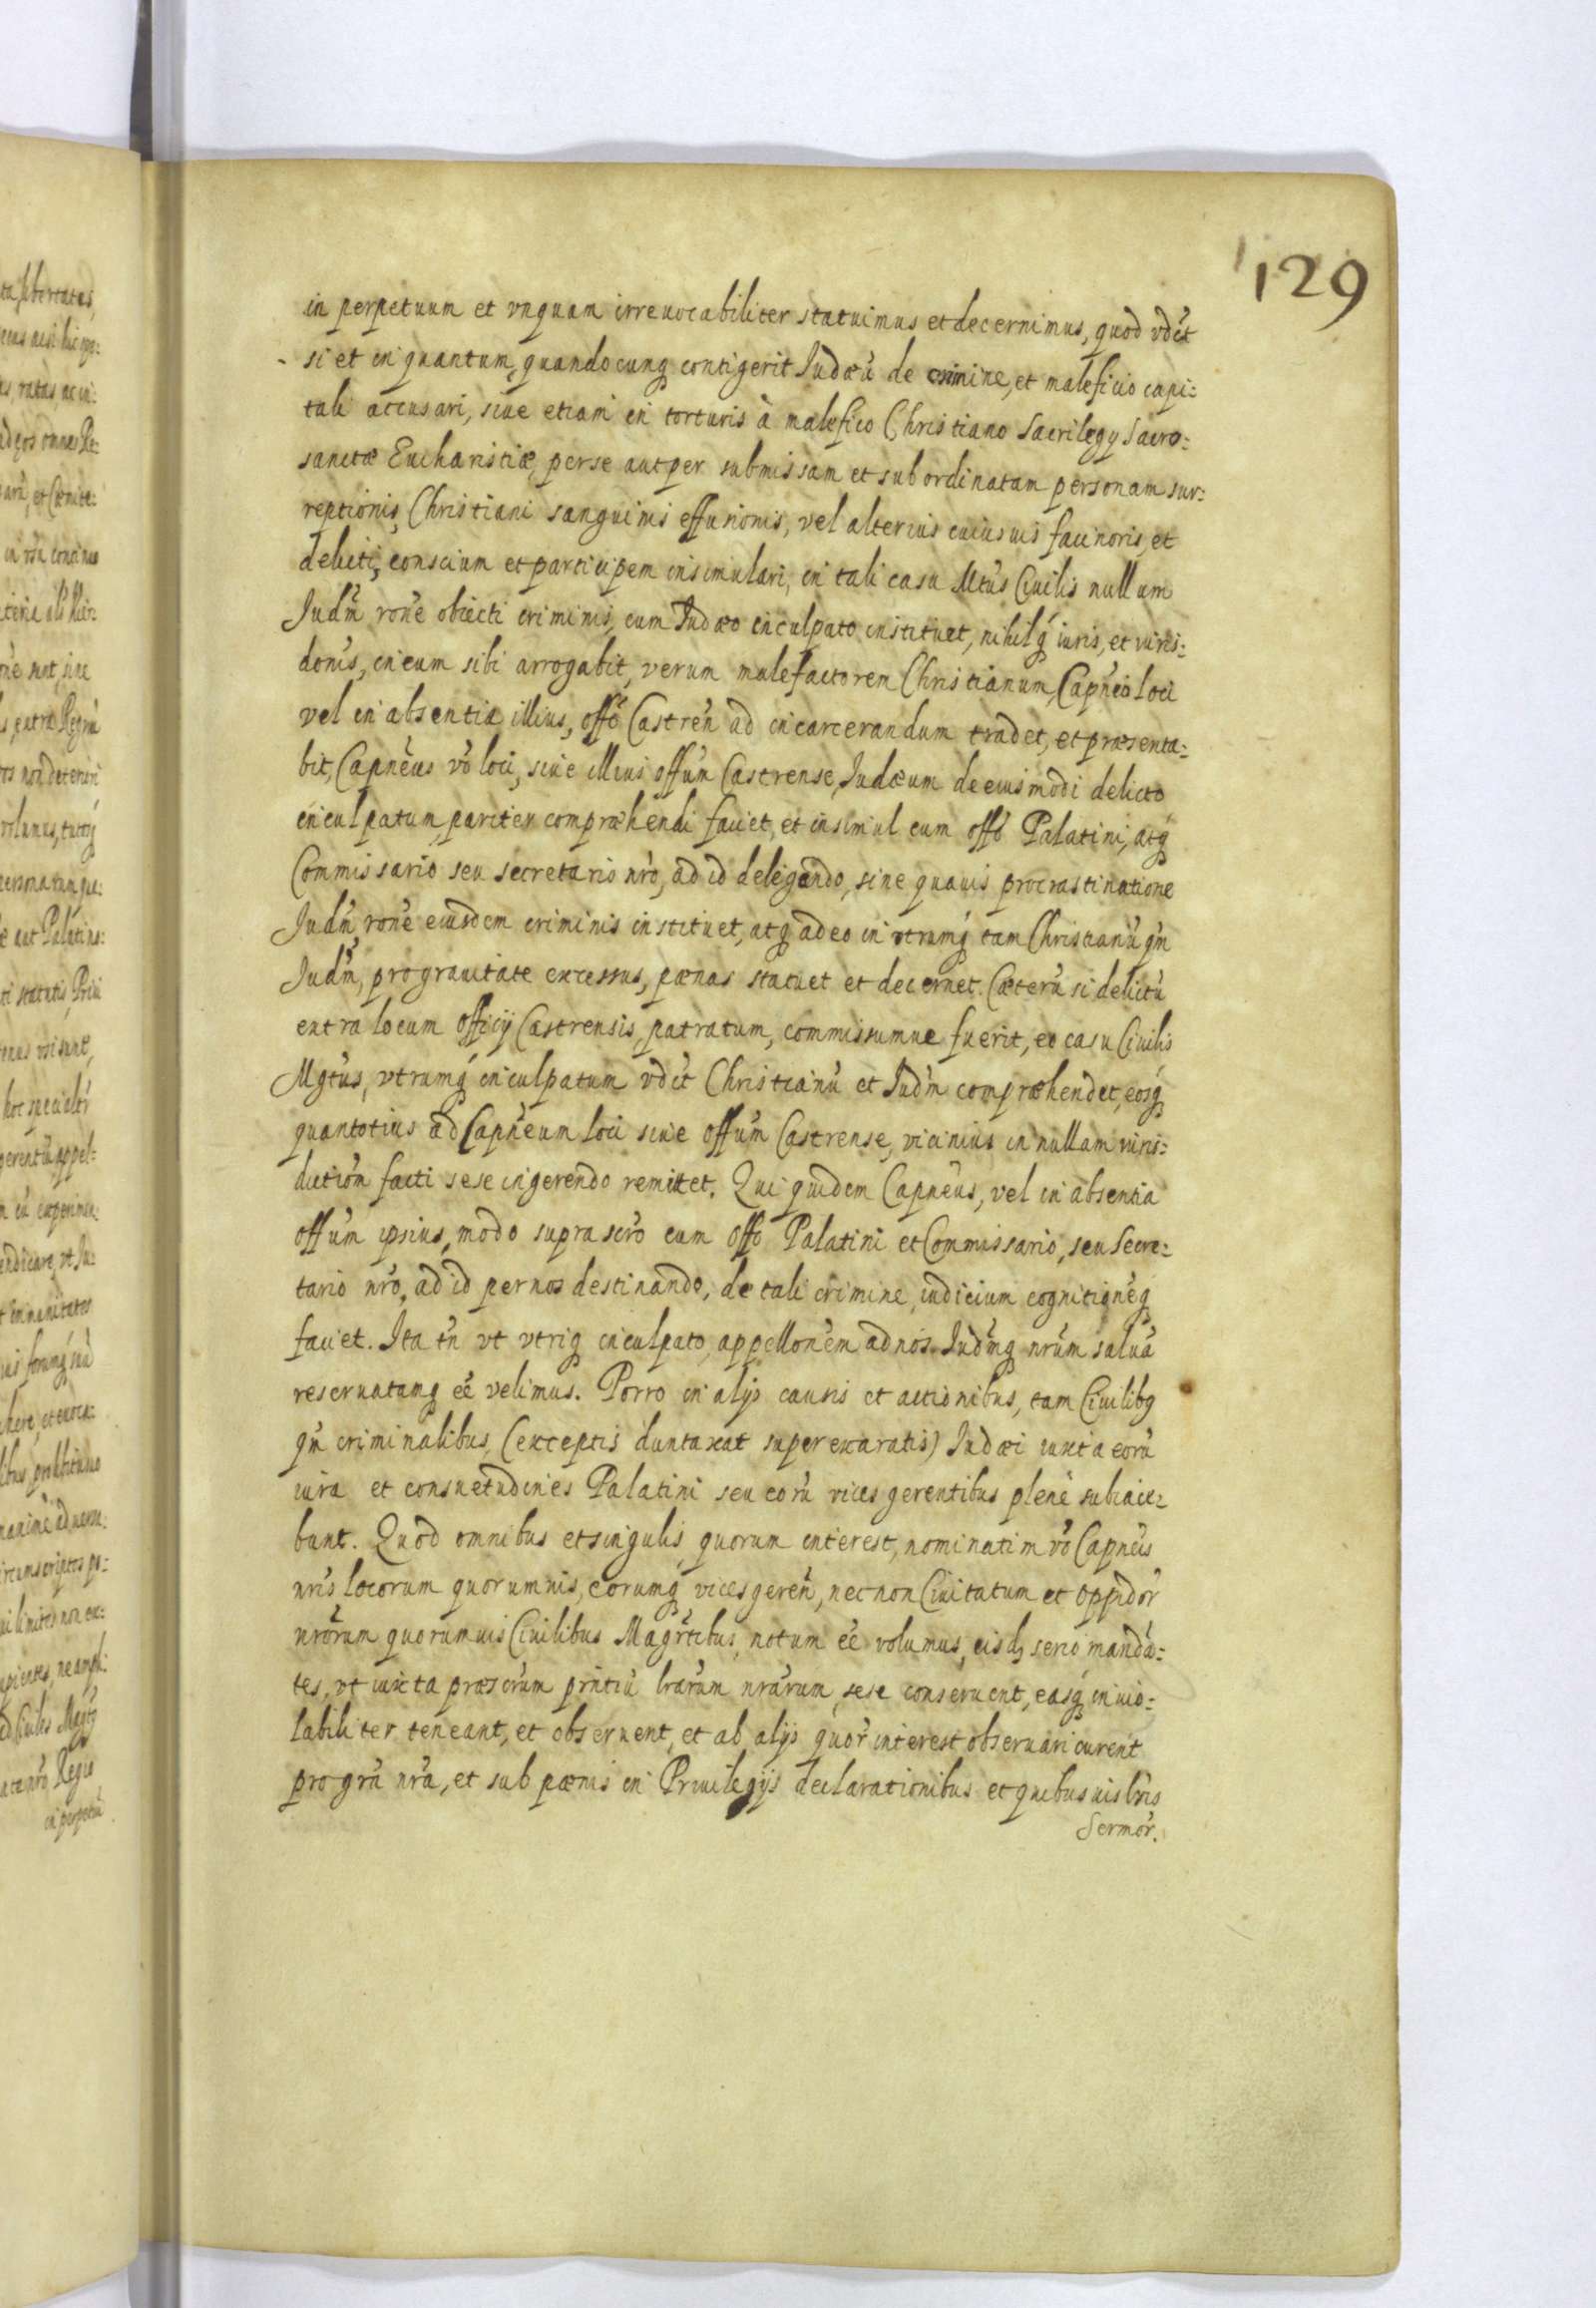 129
in perpetuum et vnquam irreuocabiliter statuimus et decernimus, quod vdēt
si et in quantum, quandocunq contigerit Iudæū de crimine, et maleficio capi:
tali accusari, siue etiam in torturis à malefico Christiano Sacrilegy Sacro:
sanctæ Eucharistiæ, per se aut per submissam et subordinatam personam sur:
reptionis, Christiani sanguinis effusionis, vel alterius cuiusuis facinoris, et
delicti, conscium et participem insimulari, in tali casu Mtūs Ciuilis nullum
Iudm̄ ronē obiecti criminis, cum Iudæo inculpato instituet, nihilq́ iuris, et iuris:
donis, in eum sibi arrogabit, verum malefactorem Christianum, Capnēo loci
vel in absentia illius, offō Castren̄ ad incarcerandum tradet, et præsenta:
bit, Capnēus vō loci, siue illius offūm Castrense, Iudæum de eiusmodi delicto
inculpatum pariter compræhendi faciet, et insimul cum offō Palatini, atq́
Commissario seu secretario nrō, ad id delegando, sine quauis procrastinatione
Iudm̄ ronē eiusdem criminis instituet, atq́ adeo in vtrumq́ tam Christianū qm̄
Iudm̄, pro grauitate excessus, pænas statuet et decernet. Cæterū si delictū
extra locum officij Castrensis, patratum, commissumue fuerit, eo casu Ciuilis
Mgtūs, vtrumq́ inculpatum vdēt Christianū et Iudm̄ compræhendet, eosq́
quantotius ad Capnēum loci siue offūm Castrense, vicinius in nullam iuris:
diction̄ facti sese ingerendo remittet. Qui quidem Capnēus, vel in absentia
offūm ipsius, modo suprascrō cum offō Palatini et Commissario, seu Secre:
tario nrō, ad id per nos destinando, de tali crimine, iudicium cognitionēq
faciet. Ita tn̄ vt vtriq inculpato, appellonēm ad nos Iudm̄q nrūm saluā
reseruatamq eē velimus. Porro in alijs causis et actionibus, tam Ciuilibq
qm̄ criminalibus, (exceptis duntaxat superexaratis) Iudæi iuxta eorū
iura et consuetudines Palatini seu eorū vices gerentibus plenè subiace:
bunt. Quod omnibus et singulis, quorum interest, nominatim vō Capnēis
nrīs locorum quorumuis, eorumq́ vices geren̄, nec non Ciuitatum et Oppidor̄
nrōrum quorumuis Ciuilibus Magrtībus, notum eē volumus, eisdȝ serio mandā:
tes, vt iuxta præscrūm prntiū lrārum nrārum, sese conseruent, easq́ inuio:
labiliter teneant, et obseruent, et ab alijs quor̄ interest obseruari curent
pro grā nrā, et sub pænis in Priuilegijs declarationibus et quibusuis lrīs
Sermor̄.